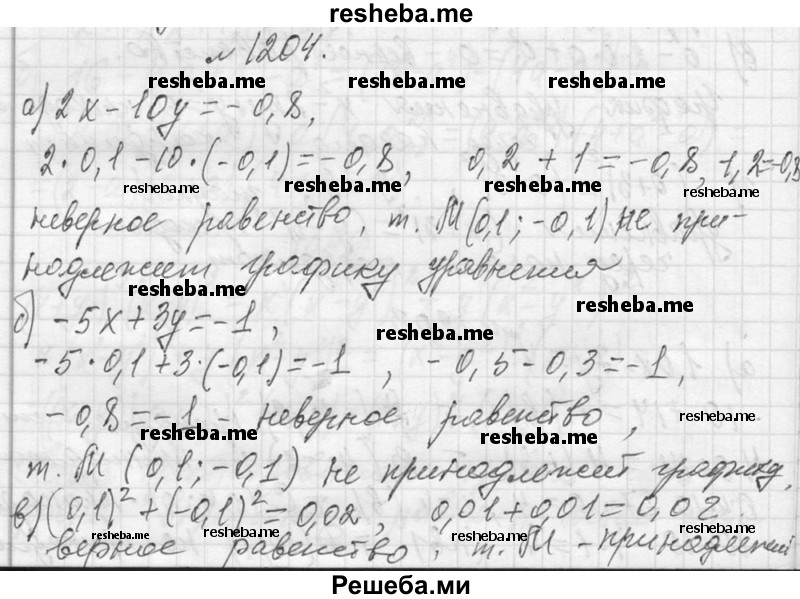 resheba.me
№ 1204.
resheba.me resheba.me resheba.me
а) 2x - 10y = - 0,8,
2·0,1 - 10·(-0,1) = -0,8, 0,2 + 1 = -0,8, 1,2=-0,8
resheba.me resheba.me resheba.me resheba.me
неверное равенство, т. М(0,1; -0,1) не при-
надлежит графику уравнения
resheba.me resheba.me
б) -5x + 3y = -1,
resheba.me
-5·0,1 + 3·(-0,1) = -1, -0,5 - 0,3 = -1,
-0,8 = -1 - неверное равенство,
resheba.me resheba.me resheba.me
т. М (0,1; -0,1) не принадлежит графику,
в) (0,1)² + (-0,1)² = 0,02, 0,01 + 0,01 = 0,02
resheba.me resheba.me resheba.me resheba.me
верное равенство, т. М - принадлежит
Решеба.ми